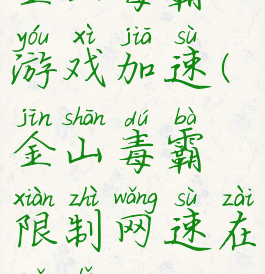 yóu xì jiā sù
游戏加速(
jīn shān dú bà
金山毒霸
xiàn zhì wǎng sù zài
限制网速在